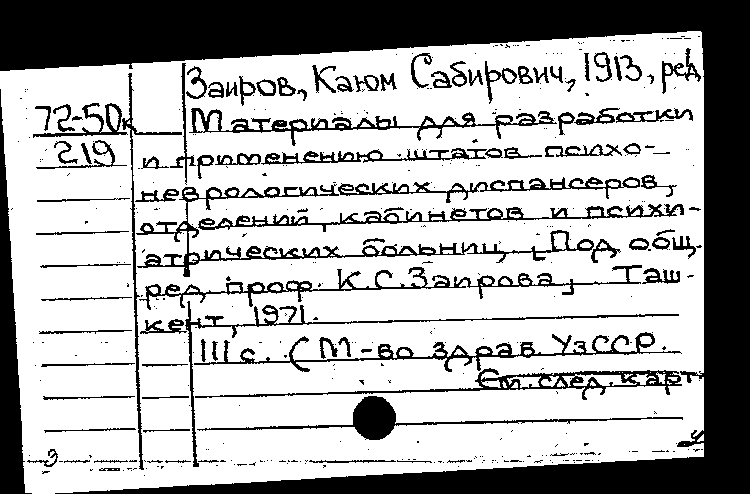 Заиров, Каюм Сабирович, 1913, ред.
72-50к
219
Материалы для разработки
и применению штатов психо-
неврологических диспансеров,
отделений, кабинетов и психи-
атрических больниц, [Под общ.
ред. проф. К.С. Заирова] Таш-
кент, 1971.
111 с. (М-во здрав. УзССР.
См. след. карт.